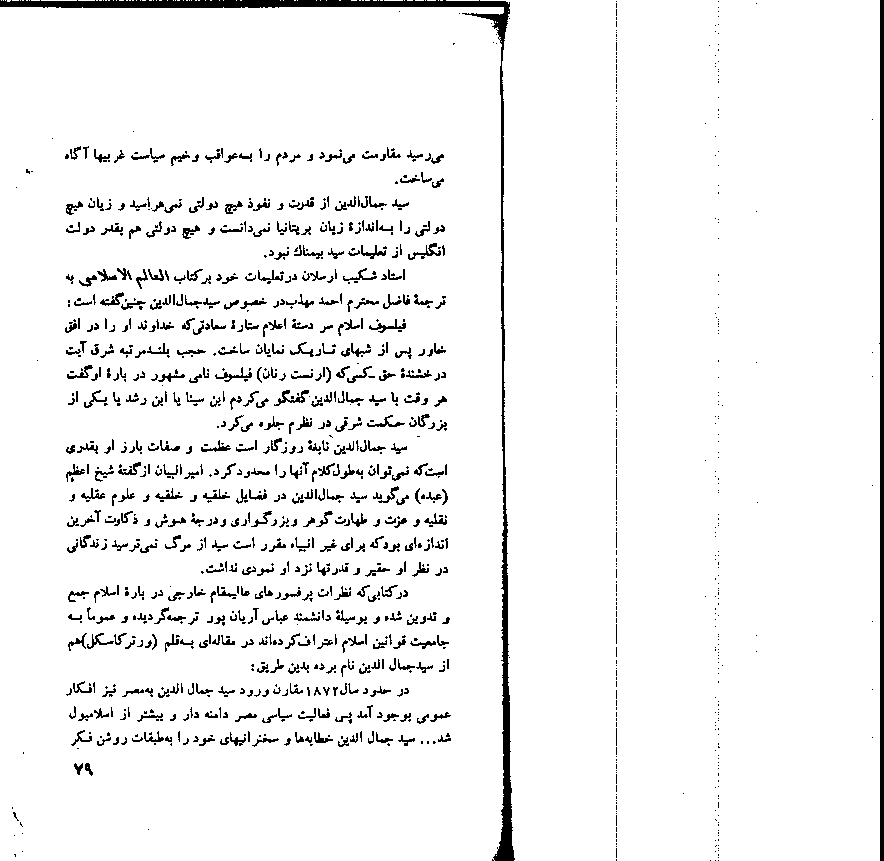 می‌رسید مقاومت می‌نمود و مردم را به‌عواقب وخیم سیاست غربیها آگاه
می‌ساخت.
سید جمال‌الدین از قدرت و نفوذ هیچ دولتی نمی‌هراسید و زیان هیچ
دولتی را به‌اندازهٔ زیان بریتانیا نمی‌دانست و هیچ دولتی هم بقدر دولت
انگلیس از تعلیمات سید بیمناك نبود.
استاد شکیب ارسلان درتعلیمات خود برکتاب العالم الاسلامی به
ترجمهٔ فاضل محترم احمد مهذب‌در خصوص سیدجمال‌الدین چنین‌گفته است:
فیلسوف اسلام سر دستهٔ اعلام ستارهٔ سعادتی‌که خداوند او را در افق
خاور پس از شبهای تاریک نمایان ساخت. حجب بلندمرتبه شرق آیت
درخشندهٔ حق ـکسی‌که (ارنست رنان) فیلسوف نامی مشهور در بارهٔ اوگفت
هر وقت با سید جمال‌الدین‌گفتگو می‌کردم ابن سینا یا ابن رشد یا یکی از
بزرگان حکمت شرقی در نظرم جلوه می‌کرد.
سید جمال‌الدین نابغهٔ روزگار است عظمت و صفات بارز او بقدری
است‌که نمی‌توان به‌طول‌کلام آنها را محدودکرد. امیرالبیان ازگفتهٔ شیخ اعظم
(عبده) می‌گوید سید جمال‌الدین در فضایل خلقیه و خلقیه و علوم عقلیه و
نقلیه و عزت و طهارت گوهر وبزرگواری ودرجهٔ هوش و ذکاوت آخرین
اندازه‌ای بودکه برای غیر انبیاء مقرر است سید از مرگ نمی‌ترسید زندگانی
در نظر او حقیر و قدرتها نزد او نمودی نداشت.
درکتابی‌که نظرات پرفسورهای عالیمقام خارجی در بارهٔ اسلام جمع
و تدوین شده و بوسیلهٔ دانشمند عباس آریان پور ترجمه‌گردیده و عموماً به
جامعیت قوانین اسلام اعتراف‌کرده‌اند در مقاله‌ای به‌قلم (ورترکاسکل)هم
از سیدجمال الدین نام برده بدین طریق:
در حدود سال۱۸۷۲مقارن ورود سید جمال الدین به‌مصر نیز افکار
عمومی بوجود آمد پس فعالیت سیاسی مصر دامنه دار و بیشتر از اسلامبول
شد... سید جمال الدین خطابه‌ها و سخنرانیهای خود را به‌طبقات روشن فکر
۷۹